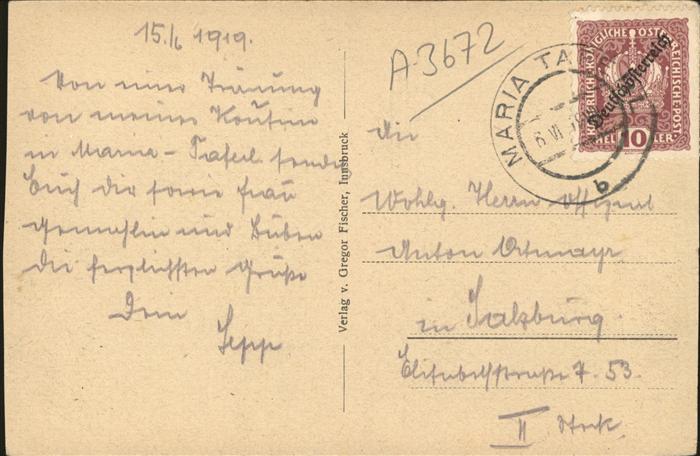 15./6 1919.
Von einer Trauung
von meiner Kousine
in Maria-Taferl sende
Euch dir sowie Frau
Gemahlin und Buben
die herzlichsten Grüße
Dein
Sepp
Verlag v. Gregor Fischer, Innsbruck
A-3672
MARIA TA
6 VI
b
KAISERLICHE KÖNIGLICHE ÖSTERREICHISCHE POST
Deutschösterreich
10
HELLER
An
Wohlg. Herrn Offizial
Anton Ortmayr
in Salzburg.
Elisabethstraße 7. 53.
II Stock